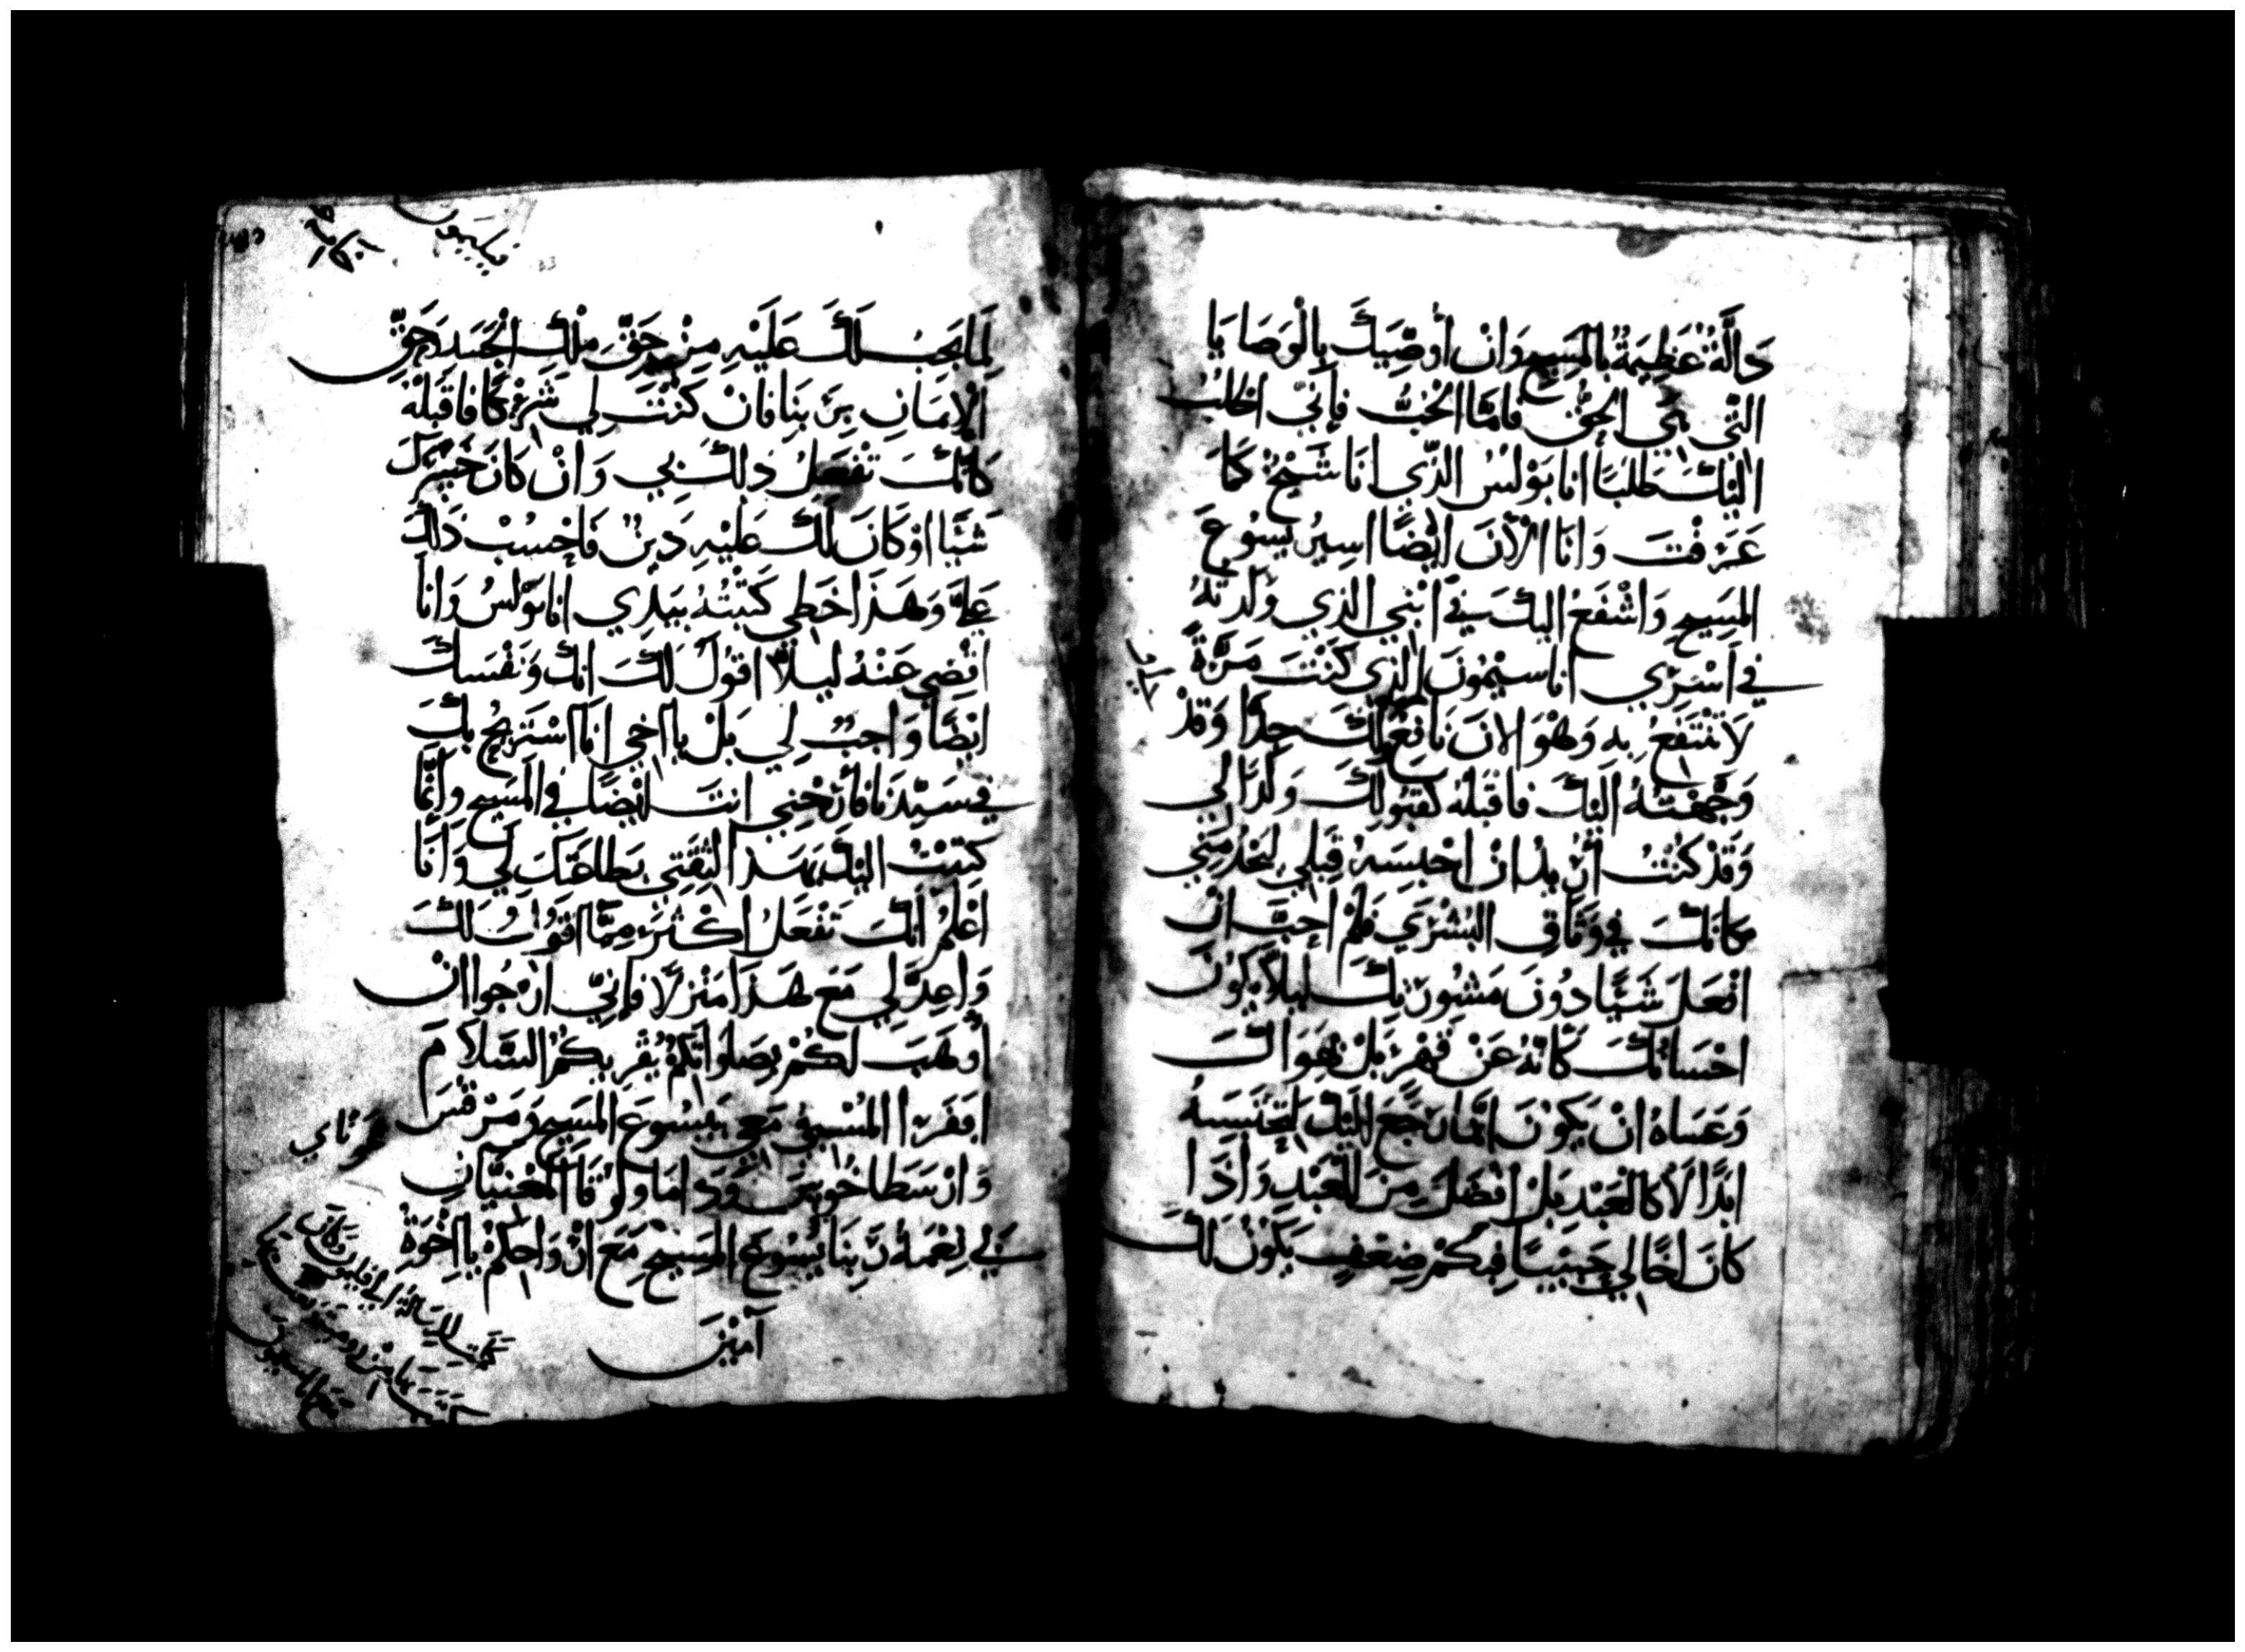 دَالَّةً عَظِيمَةً بِالمَسِيحِ وَانْ أُوصِّيَكَ بِالْوَصَايَا
التَّي هِي الحَقُّ فَامَّا الحُبُّ فَإِنّي اطْلُبُ
اِلَيْكَ طَلَبًا انا بَوْلُسُ الَّذِي انَا شَيْخٌ كَمَا
عَرَفْتَ وَانَا الْآنَ ايْضًا اسِيرُ يَسُوعَ
المَسِيحِ وَاشْفَعُ اليْكَ فِي ابْنِي الذِي وَلَدْتُهُ
في اَسْرِي اناسيمُونَ الذِي كَنْتَ مَرَّةً
لَا تَنْتَفِعُ بِهِ وَهْوَ الانَ نَافِعٌ لَكَ جِدًّا وَقَدْ
وَجَّهْتُهُ اِلَيْكَ فَاقْبَلْهُ كَقَبُولِكَ وَلَدًا لي
وَقَدْ كُنْتُ أُرِيدُ انْ احْبِسَهُ قِبَلِي لِيَخْدُمَنِي
مَكَانَكَ فِي وَثَاقِ البُشْرَي فَلَمْ اُحِبَّ انْ
افْعَلَ شَيًّا دُونَ مَشُورَتِكَ لِيلَا يَكُونَ
احْسَانُكَ كَانَّهُ عَنْ قَهْرٍ بَلْ بِهَوَاكَ
وَعَسَاهُ انْ يَكُونَ انَّمَا رَجَعَ الَيْكَ لِتَحْبِسَهُ
ابَدًا لَا كَالعَبْدِ بَلْ افْضَلَ مِنَ العَبْدِ وَاذَا
كَانَ اخًا لِي حَبِيبًا فَبِكَمْ ضِعْفٍ يَكُونُ لَكَ
لِمَا يَجِبُ لَكَ عَلَيْهِ مِنْ حَقِّ مِلْكِ الْجَسَدِ وَحَقِّ
الْإِيمَانِ بِرَبِّنَا فَانْ كَنْتَ لِي شَرِيْكًا فَاقْبَلْهُ
كَانَّكَ تَفْعَلُ ذَلِكَ بِي وَانْ كَانَ خَسَّرَكَ
شَيًّا اوْ كَانَ لَكَ عَلَيْهِ دَيْنٌ فَاحْسُبْ ذَلِكَ
عَليَّ وَهَذَا خَطِي كَتَبْتُهُ بِيَدِي انا بَوْلُسُ وَانَا
اقْضِي عَنْهُ لِيلَا اقُولُ لَكَ انَّكَ وَنَفْسَكَ
ايْضًا وَاجِبٌ لِي بَلْ يا اخِي انَا اسْتَرِيحُ بِكَ
فِي سَيِّدِنَا فَارِحْنِي انتَ ايْضًا فِي المَسِيحِ وَانَّمَا
كَتَبْتُ اليْكَ بِهَذَا لِثِقَتِي بِطَاعَتِكَ لِي وَانَا
اعْلَمُ انَّكَ تَفْعَلُ اكْثَرَ مِمَّا اقُولُ لَكَ
وَاعِدَّ لِي مَعَ هَذَا مَنْزِلًا فَإِنِّي ارْجُوا انْ
اُوهَبَ لَكُمْ بِصَلَوَاتِكُمْ يُقْرِيكُمُ السَّلَامَ
ابَفْرَا المَسْبِيُّ مَعِي بِيَسُوعَ المَسِيحِ وَمَرْقُسَ
وَارِسْطَاخُوسَ وَدَامَا وَلُوقَا المُعْنِيَّانِ
بِي نِعْمَةُ رَبِّنَا يَسُوعَ المَسِيحِ مَعَ ارْوَاحِكُمْ يا اخْوَةُ
آمِيْنَ